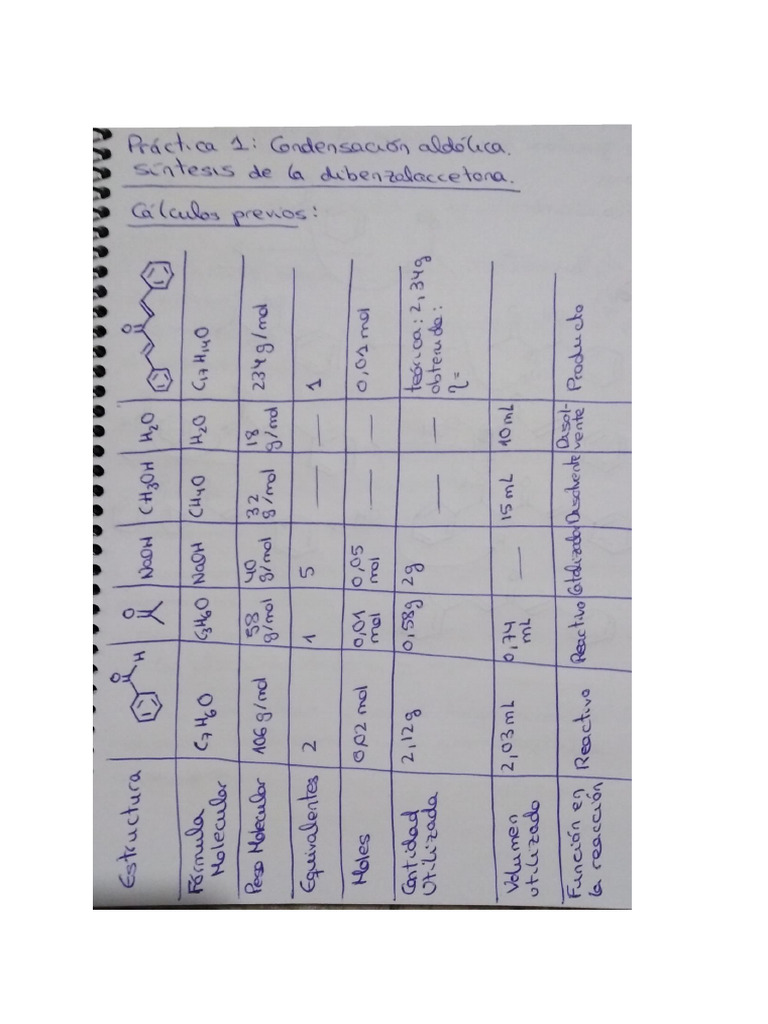 Práctica 1: Condensación aldólica.
Síntesis de la dibenzalaccetona.
Cálculos previos:
Estructura O H O NaOH CH3OH H2O O
Fórmula Molecular C7H6O C3H6O NaOH CH4O H2O C17H14O
Peso Molecular 106g/mol 58 g/mol 40 g/mol 32 g/mol 18 g/mol 234g/mol
Equivalentes 2 1 5 — — 1
Moles 0,02 mol 0,01 mol 0,05 mol — — 0,01 mol
Cantidad Utilizada 2,12g 0,58g 2g — — teórica: 2,34g obtenida: η=
Volumen utilizado 2,03mL 0,74 mL — 15mL 10mL
Función en la reacción Reactivo Reactivo Catalizador Disolvente Disol-vente Producto